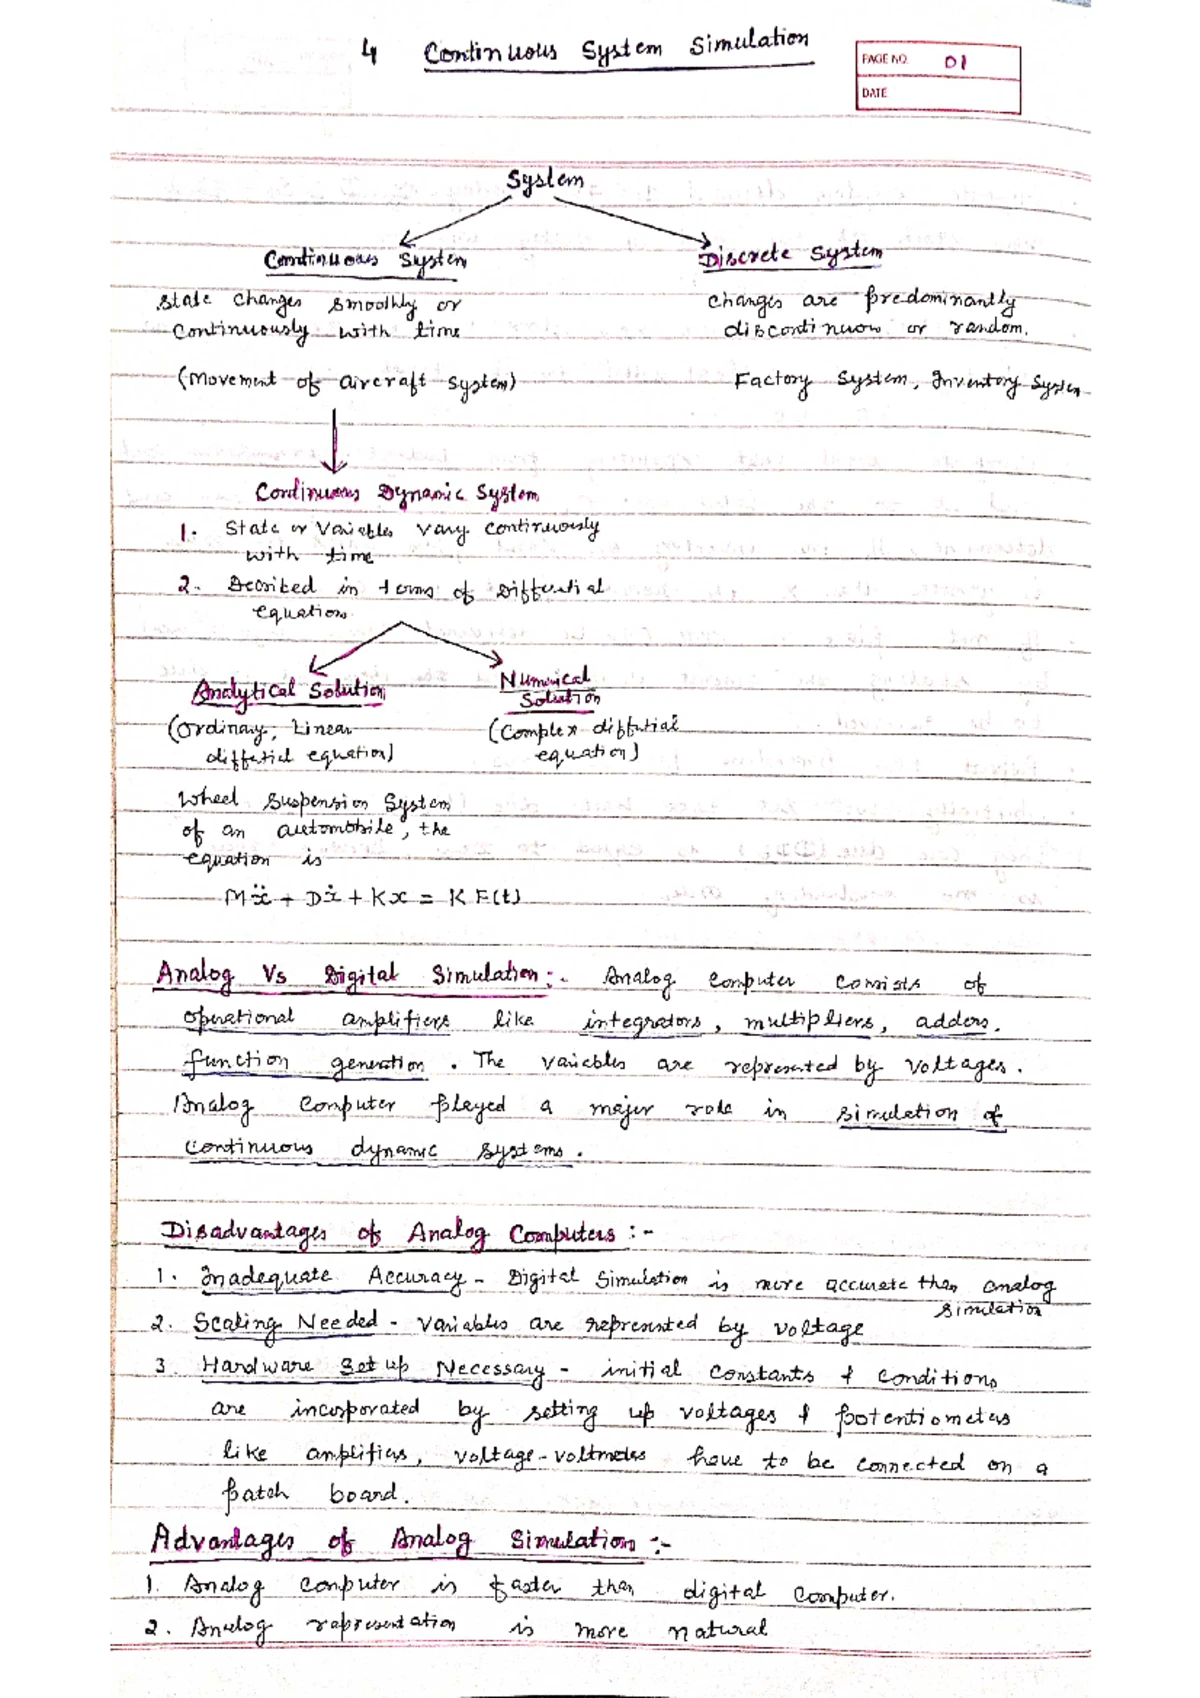 4 Continuous System Simulation
PAGE NO. 01
DATE
System
Continuous System
Discrete System
State changes smoothly or
Continuously with time
changes are predominantly
discontinuous or random.
(Movement of aircraft system)
Factory System, Inventory System
Continuous Dynamic System
1. State or Variables vary continuously
with time
2. Described in terms of Differential
equation
Analytical Solution
Numerical
Solution
(Ordinary, Linear
differtial equation)
(Complex differtial
equation)
Wheel Suspension System
of an automobile, the
equation is
Mẍ + Dẋ + Kx = K F(t)
Analog Vs Digital Simulation :- Analog computer consists of
operational amplifiers like integrators, multipliers, adders,
function generation. The variables are represented by voltages.
Analog Computer played a major role in simulation of
continuous dynamic systems.
Disadvantages of Analog Computers :-
1. Inadequate Accuracy - Digital Simulation is more accurate than analog
simulation
2. Scaling Needed - Variables are represented by voltage
3. Hardware Set up Necessary - initial constants & conditions
are incorporated by setting up voltages & potentiometers
like amplifiers, voltage-voltmeters have to be connected on a
patch board.
Advantages of Analog Simulation :-
1. Analog computer is faster than digital computer.
2. Analog representation is more natural